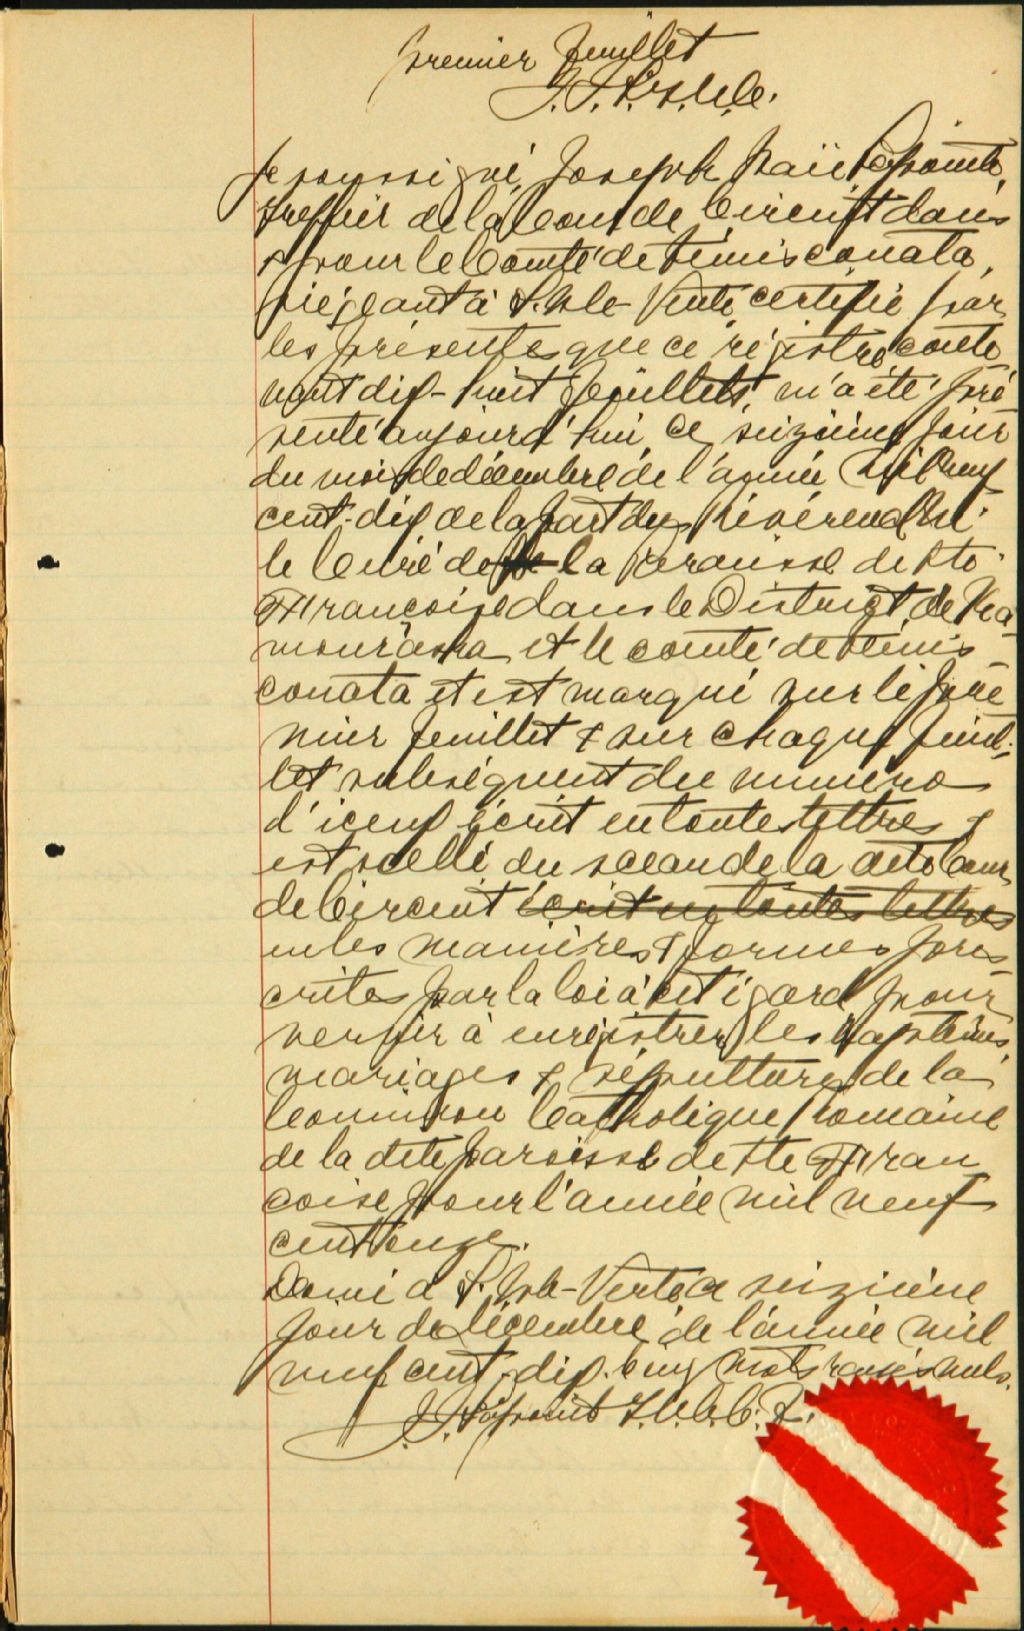 premier feuillet
J. S. L. g. c. c.
Je soussigné, Joseph Lapointe,
greffier de la Cour de Circuit dans
& pour le Comté de Témisconata,
siégeant à L'Isle-Verte, certifie par
les présentes que ce régistre conte
nant dix-huit feuillets, m'a été pré
senté aujourd'hui, ce seizième jour
du mois de décembre de l'année mil neuf
cent-dix de la part du Révérend
le Curé de la paroisse de Ste
Françoise dans le District de Ka
mouraska et le comté de Témis
conata et est marqué sur le pre
mier feuillet & sur chaque feuil-
let subséquent du numéro
d'iceux écrit en toute lettres &
est scellé du sceau de la dite Cour
de Circuit écrit en toutes lettres
en les manières & formes pres
crites par la loi à cet égard pour
servir à enrégistrer les baptêmes,
mariages & sépultures de la
Commion Catholique Romaine
de la dite paroisse de Ste Fran
çoise pour l'année mil neuf
cent onze.
Donné à L'Isle-Verte ce seizième
jour de décembre de l'année mil
neuf cent-dix. Cinq mots rayés nuls.
J. Lapointe G. C. C. C. T.